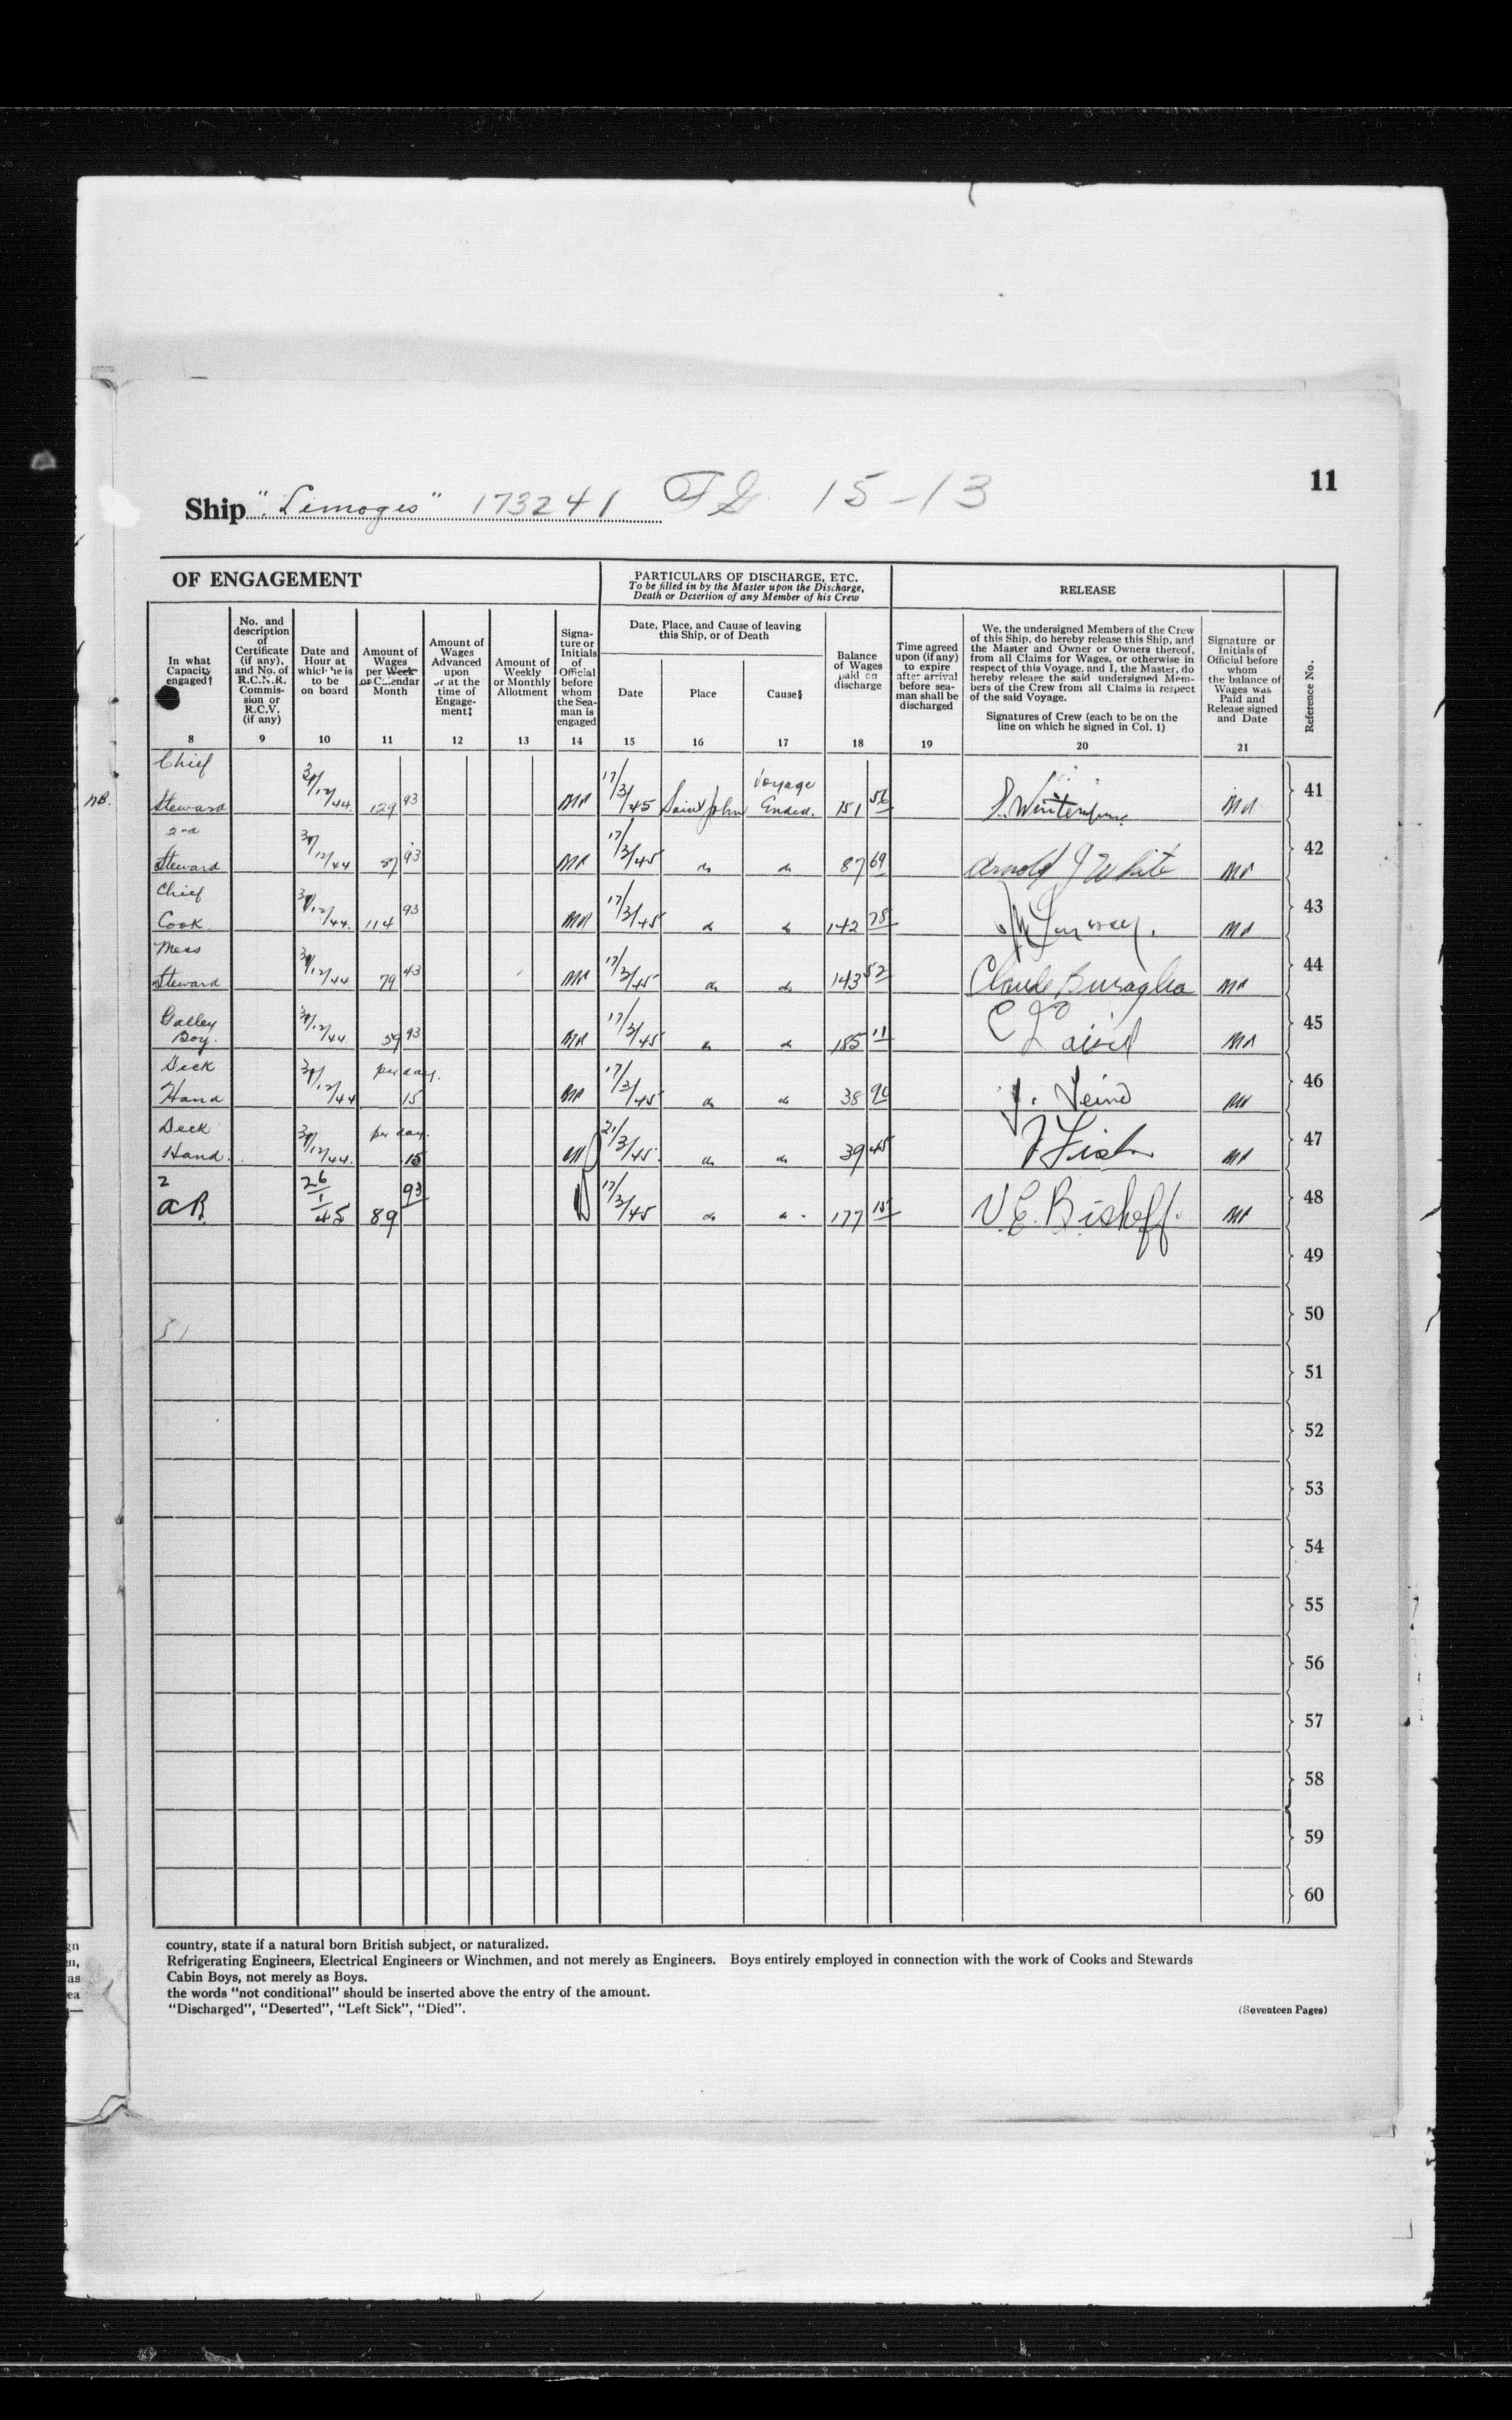 11
Ship "Limoges" 173241 15-13
OF ENGAGEMENT
PARTICULARS OF DISCHARGE, ETC.
To be filled in by the Master upon the Discharge,
Death or Desertion of any Member of his Crew
RELEASE
In what
Capacity
engaged†
8
No. and
description
of
Certificate
(if any),
and No. of
R.C.N.R.
Commis-
sion or
R.C.V.
(if any)
9
Date and
Hour at
which he is
to be
on board
10
Amount of
Wages
per Week
or Calendar
Month
11
Amount of
Wages
Advanced
upon
or at the
time of
Engage-
ment‡
12
Amount of
Weekly
or Monthly
Allotment
13
Signa-
ture or
Initials
of
Official
before
whom
the Sea-
man is
engaged
14
Date, Place, and Cause of leaving
this Ship, or of Death
Date
15
Place
16
Cause§
17
Balance
of Wages
paid on
discharge
18
Time agreed
upon (if any)
to expire
after arrival
before sea-
man shall be
discharged
19
We, the undersigned Members of the Crew
of this Ship, do hereby release this Ship, and
the Master and Owner or Owners thereof,
from all Claims for Wages, or otherwise in
respect of this Voyage, and I, the Master, do
hereby release the said undersigned Mem-
bers of the Crew from all Claims in respect
of the said Voyage.
Signatures of Crew (each to be on the
line on which he signed in Col. 1)
20
Signature or
Initials of
Official before
whom
the balance of
Wages was
Paid and
Release signed
and Date
21
Reference No.
NB.
Chief
Steward /12/44. 129 93 17/3/45 Saint John Voyage Ended. 151 56 41
2nd
Steward /12/44 87 93 17/3/45 do do 87 69 Arnold J White 42
Chief
Cook. /12/44. 114 93 17/3/45 do do 142 78 43
Mess
Steward /12/44 79 43 17/3/45 do do 143 52 Claude Buraglia 44
Galley
Boy. /12/44. 59 93 17/3/45 do do 185 11 C Laird 45
Deck per day.
Hand /12/44 15 17/3/45 do do 38 90 46
Deck per day.
Hand. /12/44. 15 21/3/45. do do 39 45 J Fish 47
2
AB. 26/1/45 89 93 17/3/45 do do 177 15 V.E. Bishoff. 48
49
51 50
51
52
53
54
55
56
57
58
59
60
country, state if a natural born British subject, or naturalized.
Refrigerating Engineers, Electrical Engineers or Winchmen, and not merely as Engineers. Boys entirely employed in connection with the work of Cooks and Stewards
Cabin Boys, not merely as Boys.
the words "not conditional" should be inserted above the entry of the amount.
"Discharged", "Deserted", "Left Sick", "Died".
(Seventeen Pages)
gn
n,
as
ea